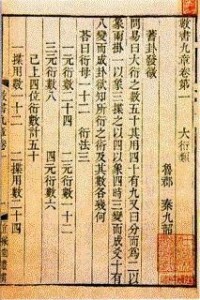 數書九章卷第一 大衍類
魯郡 秦九韶
蓍卦發微
問易曰大衍之數五十其用四十有九又曰分而為二以
象兩掛一以象三揲之以四以象四時三變而成爻十有
八變而成卦欲知所衍之術及其數各幾何
荅曰衍母一十二 衍法三
一元衍數二十四 二元衍數一十二
三元衍數八 四元衍數六
已上四位衍數計五十
一揲用數一十二 二揲用數二十四
數書九章卷一 宜稼堂叢書